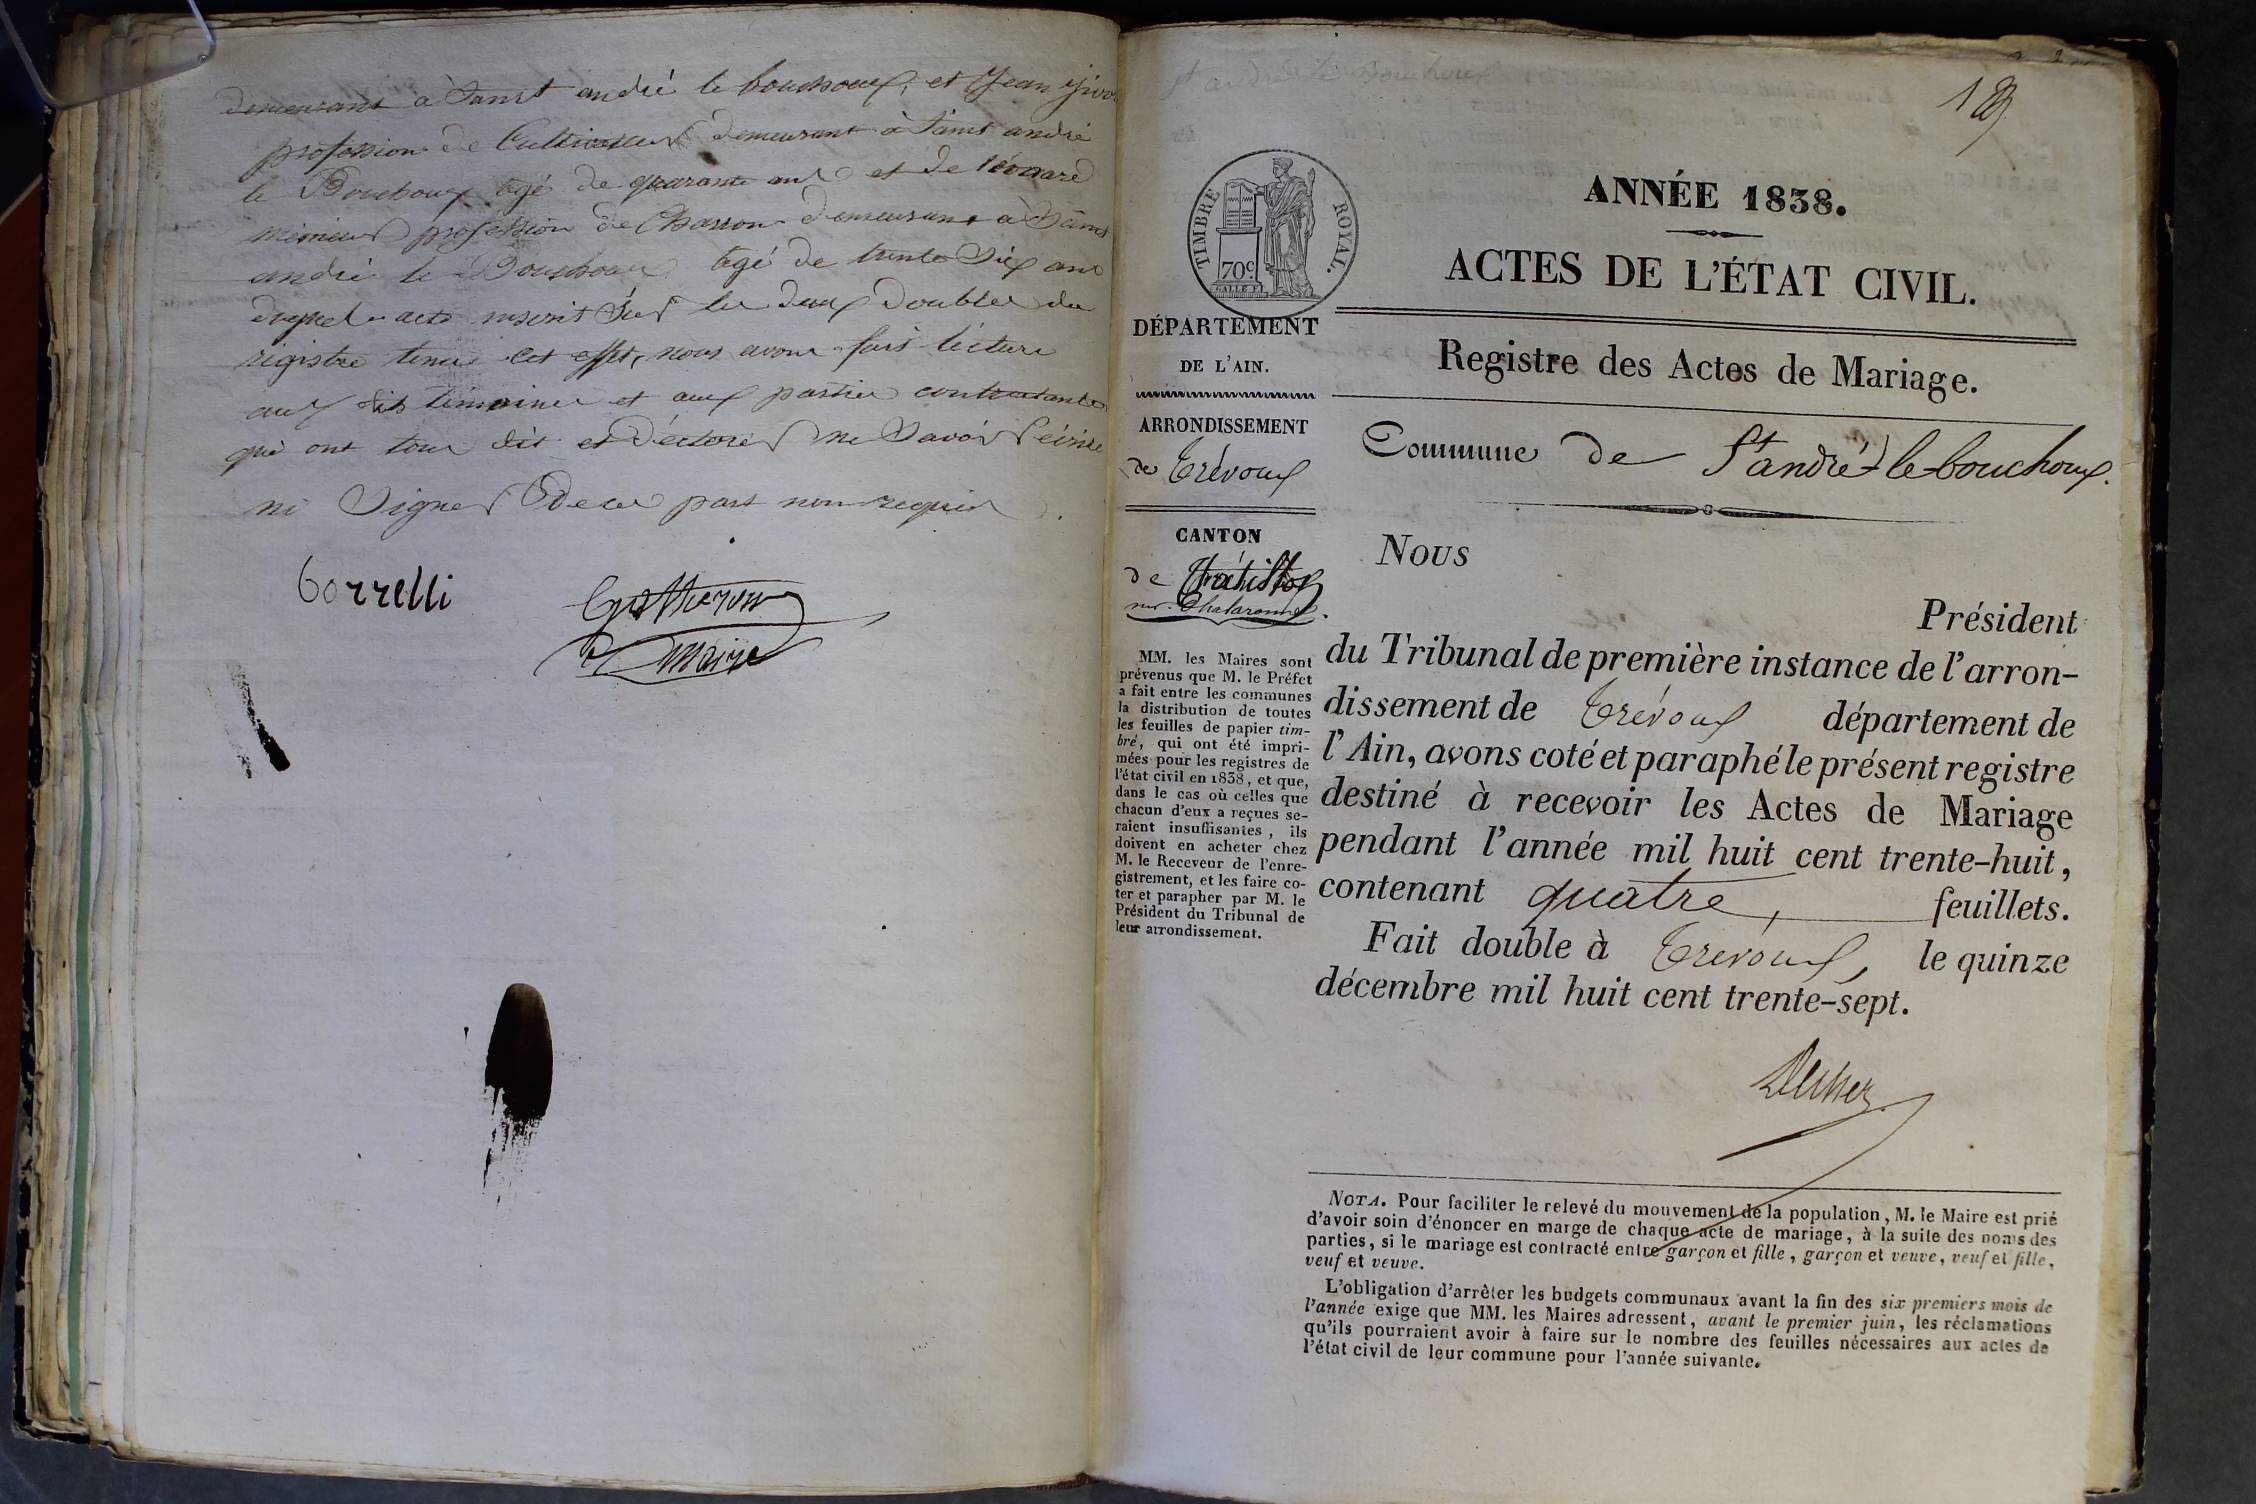 demeurant à Saint andré le bouchoux, et Jean
profession de Cultivateur demeurant à Saint andré
le Bouchoux agé de quarante ans et de léonard
profession de Charron demeurant à Saint
andré le Bouchoux agé de trente Six ans
duquel acte inscrit Sur les deux doubles du
régistre tenu cet effet, nous avons fait lécture
aux dits témoins et aux parties contractantes
qui ont tous dit et déclaré ne Savoir écrire
ni Signer de ce part requis
Borrelli
Maire
St andré le Bouchoux
ANNÉE 1838.
ACTES DE L'ÉTAT CIVIL.
TIMBRE ROYAL.
70c.
GALLE F.
DÉPARTEMENT
DE L'AIN.
ARRONDISSEMENT
de Trévoux
CANTON
de Châtillon
sur-Chalaronne.
MM. les Maires sont
prévenus que M. le Préfet
a fait entre les communes
la distribution de toutes
les feuilles de papier tim-
bré, qui ont été impri-
mées pour les registres de
l'état civil en 1838, et que,
dans le cas où celles que
chacun d'eux a reçues se-
raient insuffisantes, ils
doivent en acheter chez
M. le Receveur de l'enre-
gistrement, et les faire co-
ter et parapher par M. le
Président du Tribunal de
leur arrondissement.
Registre des Actes de Mariage.
Commune de St andré-le-bouchoux.
NOUS
Président
du Tribunal de première instance de l'arron-
dissement de Trévoux département de
l'Ain, avons coté et paraphé le présent registre
destiné à recevoir les Actes de Mariage
pendant l'année mil huit cent trente-huit,
contenant quatre, feuillets.
Fait double à Trévoux, le quinze
décembre mil huit cent trente-sept.
NOTA. Pour faciliter le relevé du mouvement de la population, M. le Maire est prié
d'avoir soin d'énoncer en marge de chaque acte de mariage, à la suite des noms des
parties, si le mariage est contracté entre garçon et fille, garçon et veuve, veuf et fille,
veuf et veuve.
L'obligation d'arrêter les budgets communaux avant la fin des six premiers mois de
l'année exige que MM. les Maires adressent, avant le premier juin, les réclamations
qu'ils pourraient avoir à faire sur le nombre des feuilles nécessaires aux actes de
l'état civil de leur commune pour l'année suivante.